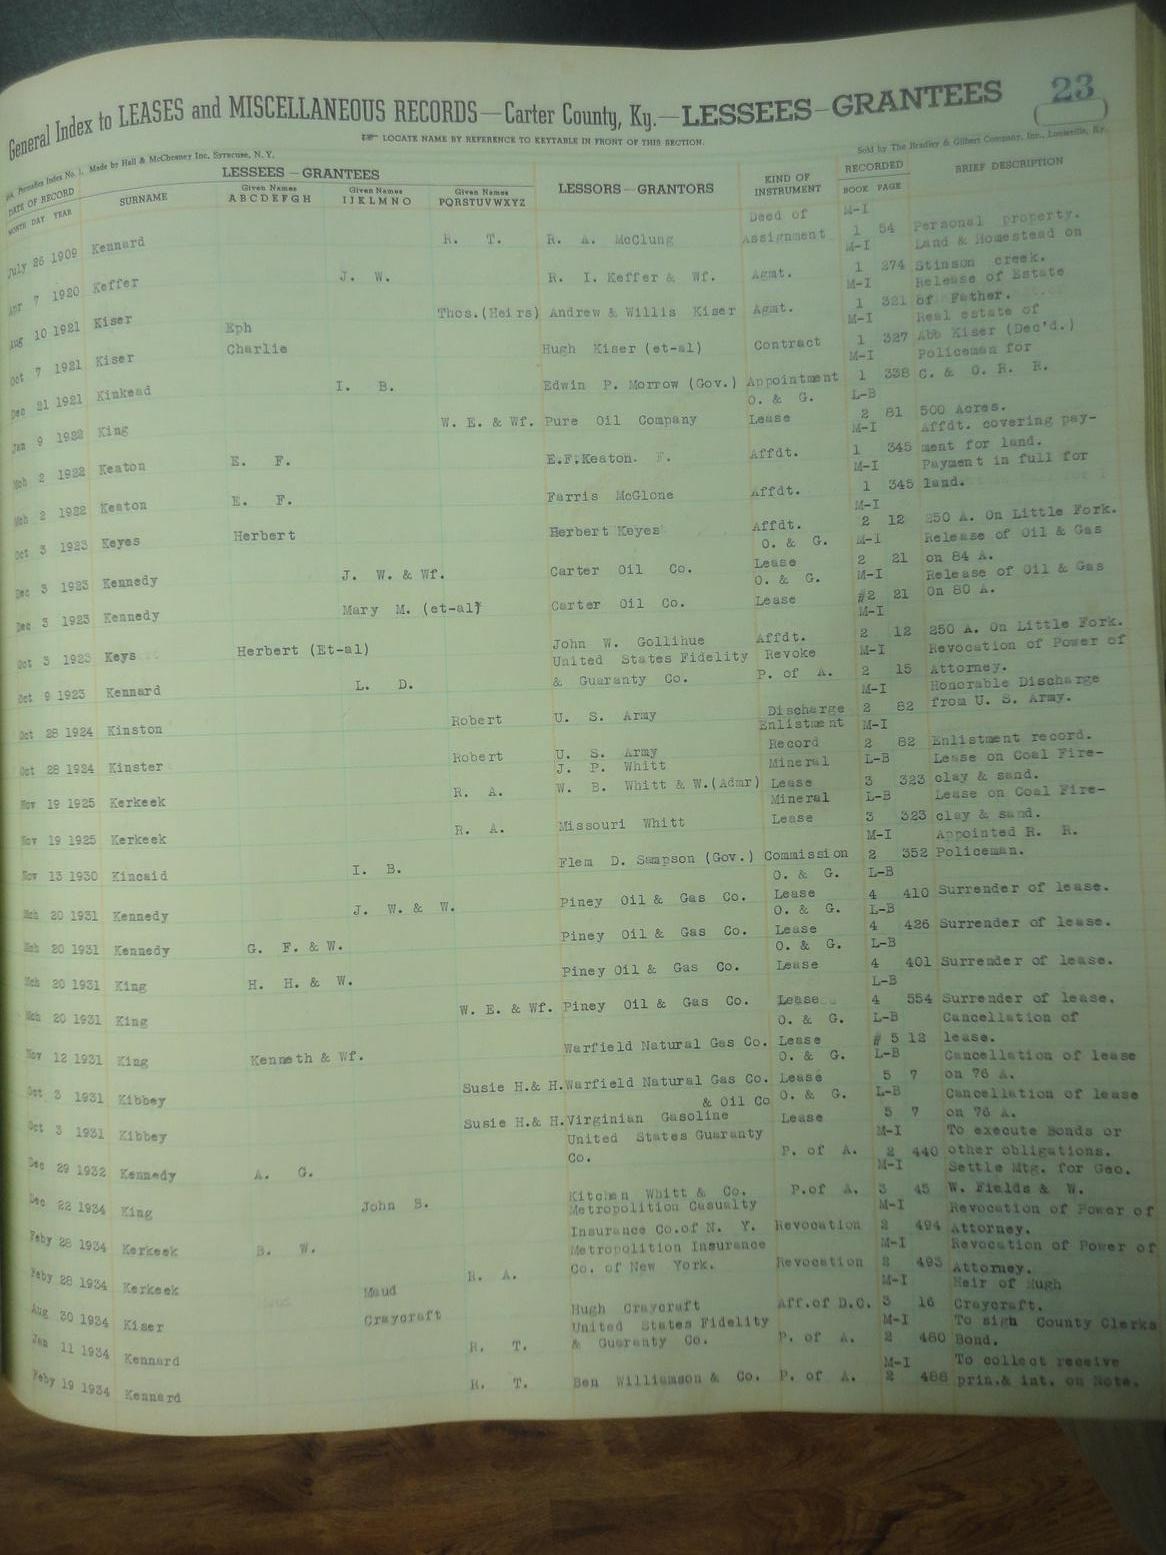 23
General Index to LEASES and MISCELLANEOUS RECORDS—Carter County, Ky.—LESSEES—GRANTEES
LOCATE NAME BY REFERENCE TO KEYTABLE IN FRONT OF THIS SECTION.
Made by Hall & McChesney Inc. Syracuse, N. Y. Sold by The Bradley & Gilbert Company, Inc., Louisville, Ky.
LESSEES—GRANTEES RECORDED
DATE OF RECORD SURNAME Given Names Given Names Given Names LESSORS—GRANTORS KIND OF INSTRUMENT BRIEF DESCRIPTION
MONTH DAY YEAR ABCDEFGH IJKLMNO PQRSTUVWXYZ BOOK PAGE
Deed of M-I
July 26 1909 Kennard R. T. R. A. McClung Assignment 1 54 Personal property.
M-I Land & Homestead on
Apr 7 1920 Keffer J. W. R. I. Keffer & Wf. Agmt. 1 274 Stinson creek.
M-I Release of Estate
Aug 10 1921 Kiser Thos.(Heirs) Andrew & Willis Kiser Agmt. 1 321 of Father.
Eph M-I Real estate of
Oct 7 1921 Kiser Charlie Hugh Kiser (et-al) Contract 1 327 Abb Kiser (Dec'd.)
M-I Policeman for
Dec 21 1921 Kinkead I. B. Edwin P. Morrow (Gov.) Appointment 1 338 C. & O. R. R.
O. & G. L-B
Jan 9 1922 King W. E. & Wf. Pure Oil Company Lease 2 81 500 Acres.
M-I Affdt. covering pay-
Mch 2 1922 Keaton E. F. E.F.Keaton. F. Affdt. 1 345 ment for land.
M-I Payment in full for
Mch 2 1922 Keaton E. F. Farris McGlone Affdt. 1 345 land.
M-I
Oct 3 1923 Keyes Herbert Herbert Keyes Affdt. 2 12 250 A. On Little Fork.
O. & G. M-I Release of Oil & Gas
Dec 3 1923 Kennedy J. W. & Wf. Carter Oil Co. Lease 2 21 on 84 A.
O. & G. M-I Release of Oil & Gas
Dec 3 1923 Kennedy Mary M. (et-al) Carter Oil Co. Lease #2 21 On 80 A.
M-I
Oct 3 1923 Keys Herbert (Et-al) John W. Gollihue Affdt. 2 12 250 A. On Little Fork.
United States Fidelity Revoke M-I Revocation of Power of
Oct 9 1923 Kennard L. D. & Guaranty Co. P. of A. 2 15 Attorney.
M-I Honorable Discharge
Oct 28 1924 Kinston Robert U. S. Army Discharge 2 82 from U. S. Army.
Enlistment M-I
Oct 28 1924 Kinster Robert U. S. Army Record 2 82 Enlistment record.
J. P. Whitt Mineral L-B Lease on Coal Fire-
Nov 19 1925 Kerkeek R. A. W. B. Whitt & W.(Admr) Lease 3 323 clay & sand.
Mineral L-B Lease on Coal Fire-
Nov 19 1925 Kerkeek R. A. Missouri Whitt Lease 3 323 clay & sand.
M-I Appointed R. R.
Nov 13 1930 Kincaid I. B. Flem D. Sampson (Gov.) Commission 2 352 Policeman.
O. & G. L-B
Mch 20 1931 Kennedy J. W. & W. Piney Oil & Gas Co. Lease 4 410 Surrender of lease.
O. & G. L-B
Mch 20 1931 Kennedy G. F. & W. Piney Oil & Gas Co. Lease 4 426 Surrender of lease.
O. & G. L-B
Mch 20 1931 King H. H. & W. Piney Oil & Gas Co. Lease 4 401 Surrender of lease.
L-B
Mch 20 1931 King W. E. & Wf. Piney Oil & Gas Co. Lease 4 554 Surrender of lease.
O. & G. L-B Cancellation of
Nov 12 1931 King Kenneth & Wf. Warfield Natural Gas Co. Lease # 5 12 lease.
O. & G. L-B Cancellation of lease
Oct 3 1931 Kibbey Susie H.& H. Warfield Natural Gas Co. Lease 5 7 on 76 A.
& Oil Co O. & G. L-B Cancellation of lease
Oct 3 1931 Kibbey Susie H.& H. Virginian Gasoline Lease 5 7 on 76 A.
United States Guaranty M-I To execute Bonds or
Dec 29 1932 Kennedy A. G. Co. P. of A. 2 440 other obligations.
M-I Settle Mtg. for Geo.
Dec 22 1934 King John S. Kitchen Whitt & Co. P.of A. 3 45 W. Fields & W.
Metropolition Casualty M-I Revocation of Power of
Feby 28 1934 Kerkeek B. W. Insurance Co.of N. Y. Revocation 2 494 Attorney.
Metropolition Insurance M-I Revocation of Power of
Feby 28 1934 Kerkeek R. A. Co. of New York. Revocation 2 493 Attorney.
Maud M-I Heir of Hugh
Aug 30 1934 Kiser Craycraft Hugh Craycraft Aff.of D.C. 3 16 Craycraft.
United States Fidelity M-I To sigh County Clerks
Jan 11 1934 Kennard R. T. & Guaranty Co. P. of A. 2 480 Bond.
M-I To collect receive
Feby 19 1934 Kennard R. T. Ben Williamson & Co. P. of A. 2 488 prin.& int. on Note.